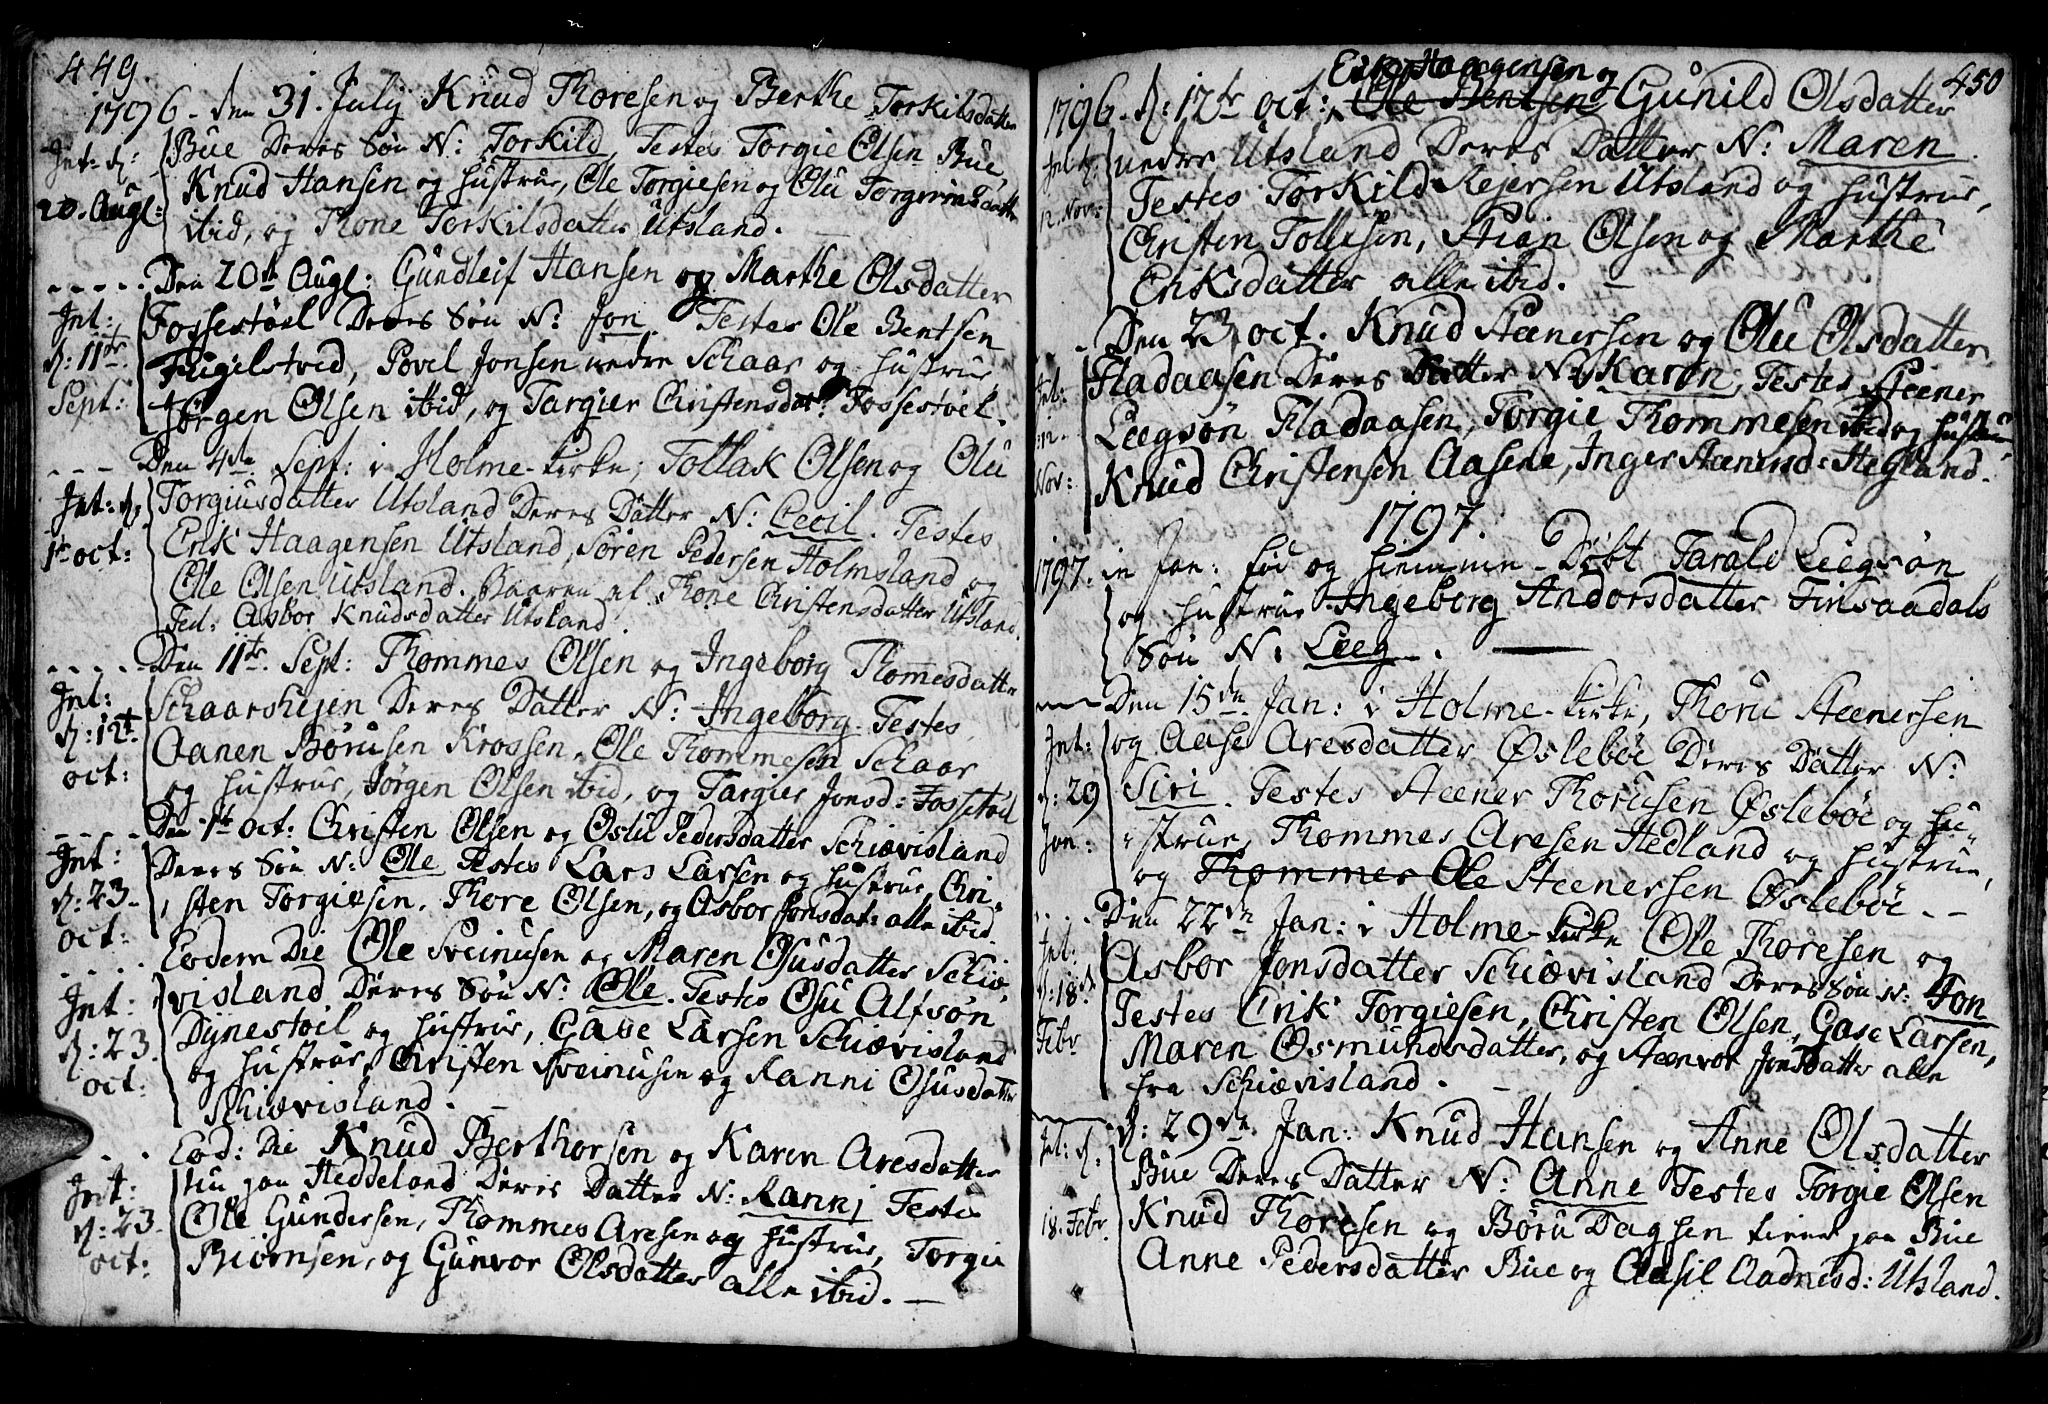 449.
1796. den 31. July Knud Thoresen og Berthe Torkilsdatter
Int: d: Bue Deres Søn N: Torkild, Testes Torgie Olsen Bue,
Knud Hansen og hustrue, Ole Torgiesen og Olu
20. Augl: ibid, og Thone Torkilsdatter Utsland.
Den 20de Augl: Gundleif Hansen og Marthe Olsdatter
Int: Fossestøel Deres Søn N: Jon. Testes Ole Bentsen
d: 11te Fugelstvid, Povel Jonsen nedre Schaar og hustrue,
Sept: Jørgen Olsen ibid, og Targier Christensdat: Fossestøel.
Den 4de Sept: i Holme-kirke; Tollak Olsen og Olu
Int: d: Torgiusdatter Utsland Deres Datter N: Cecil. Testes
1te oct: Erik Haagensen Utsland, Søren Pedersen Holmsland og
Ole Olsen Utsland. Baaren af Thone Christensdatter Utsland.
Fed: Asbor Knudsdatter Utsland.
Den 11te Sept: Thommes Olsen og Ingeborg Thomesdatter
Int: Schaarsheien Deres Datter N: Ingeborg. Testes
d: 12te Aanen Børusen Krossen, Ole Thommesen Schaar
oct: og hustrue, Jørgen Olsen ibid, og Targier Jonsd: Fossestøel
Den 1te oct: Christen Olsen og Oslu Pedersdatter Schiævisland
Int: Deres Søn N: Ole Testes Lars Larsen og hustrue, Chri-
d: 23. sten Torgiesen, Thore Olsen, og Asbor Jonsdat: alle ibid.
oct: Eodem Die Ole Sveinusen og Maren Osusdatter Schiæ-
Int: visland Deres Søn N: Ole. Testes Osu Alfsøn
Dynestøil og hustrue, Gase Larsen Schiævisland
d: 23. og hustrue, Christen Sveinusen og Ranni Osusdatter
oct: Schiævisland.
Eod: Die Knud Berthorsen og Karen Aresdatter
Int: paa Heddeland Deres Datter N: Ranni Testes
d: 23. Ole Gundersen, Thommes Aresen og hustrue, Torgie
oct: Biørnsen, og Gunvor Olsdatter alle ibid.
450
Erik Haagensen og
1796. d: 12te oct: Ole Bentsen Gunild Olsdatter
Int d: nedre Utsland Deres Datter N: Maren.
12. Nov: Testes Torkild Rejersen Utsland og hustrue,
Christen Tollisen, Stian Olsen og Marthe
Eriksdatter alle ibid.
Den 23 oct. Knud Steenersen og Olu Olsdatter
Int: Fladaasen Deres Datter N: Karen, Testes Steener
12. Leegsøn Fladaasen, Torgie Thommesen ibid og hustrue,
Nov: Knud Christensen Aasene, Inger Steenersd: Hegland.
1797.
1797. in Jan: fød og hiemme-Døbt Tarald Leegsøn
og hustrue Ingeborg Andorsdatter Finsaadals
Søn N: Leeg.
Den 15de Jan: i Holme-kirke, Thoru Steenersen
Int: og Aase Aresdatter Øslebøe Deres Datter N:
d: 29 Siri. Testes Steener Thorusen Øslebøe og hu-
Jan: strue, Thommes Aresen Hedland og hustrue,
og Thommes Ole Steenersen Øslebøe.
Den 22de Jan: i Holme-kirke Ole Thoresen og
Int: Asbor Jonsdatter Schiævisland Deres Søn N: Jon
d: 18de Testes Erik Torgiesen, Christen Olsen, Gase Larsen,
Febr Maren Osmundsdatter, og Steenvor Jonsdatter alle
fra Schiævisland.
d: 29de Jan: Knud Hansen og Anne Olsdatter
Int: d. Bue Deres Datter N: Anne Testes Torgie Olsen
18. Febr. Knud Thoresen og Børu Dagsen tienn paa Bue
Anne Pedersdatter Bue og Aasil Aadnesd: Utsland.